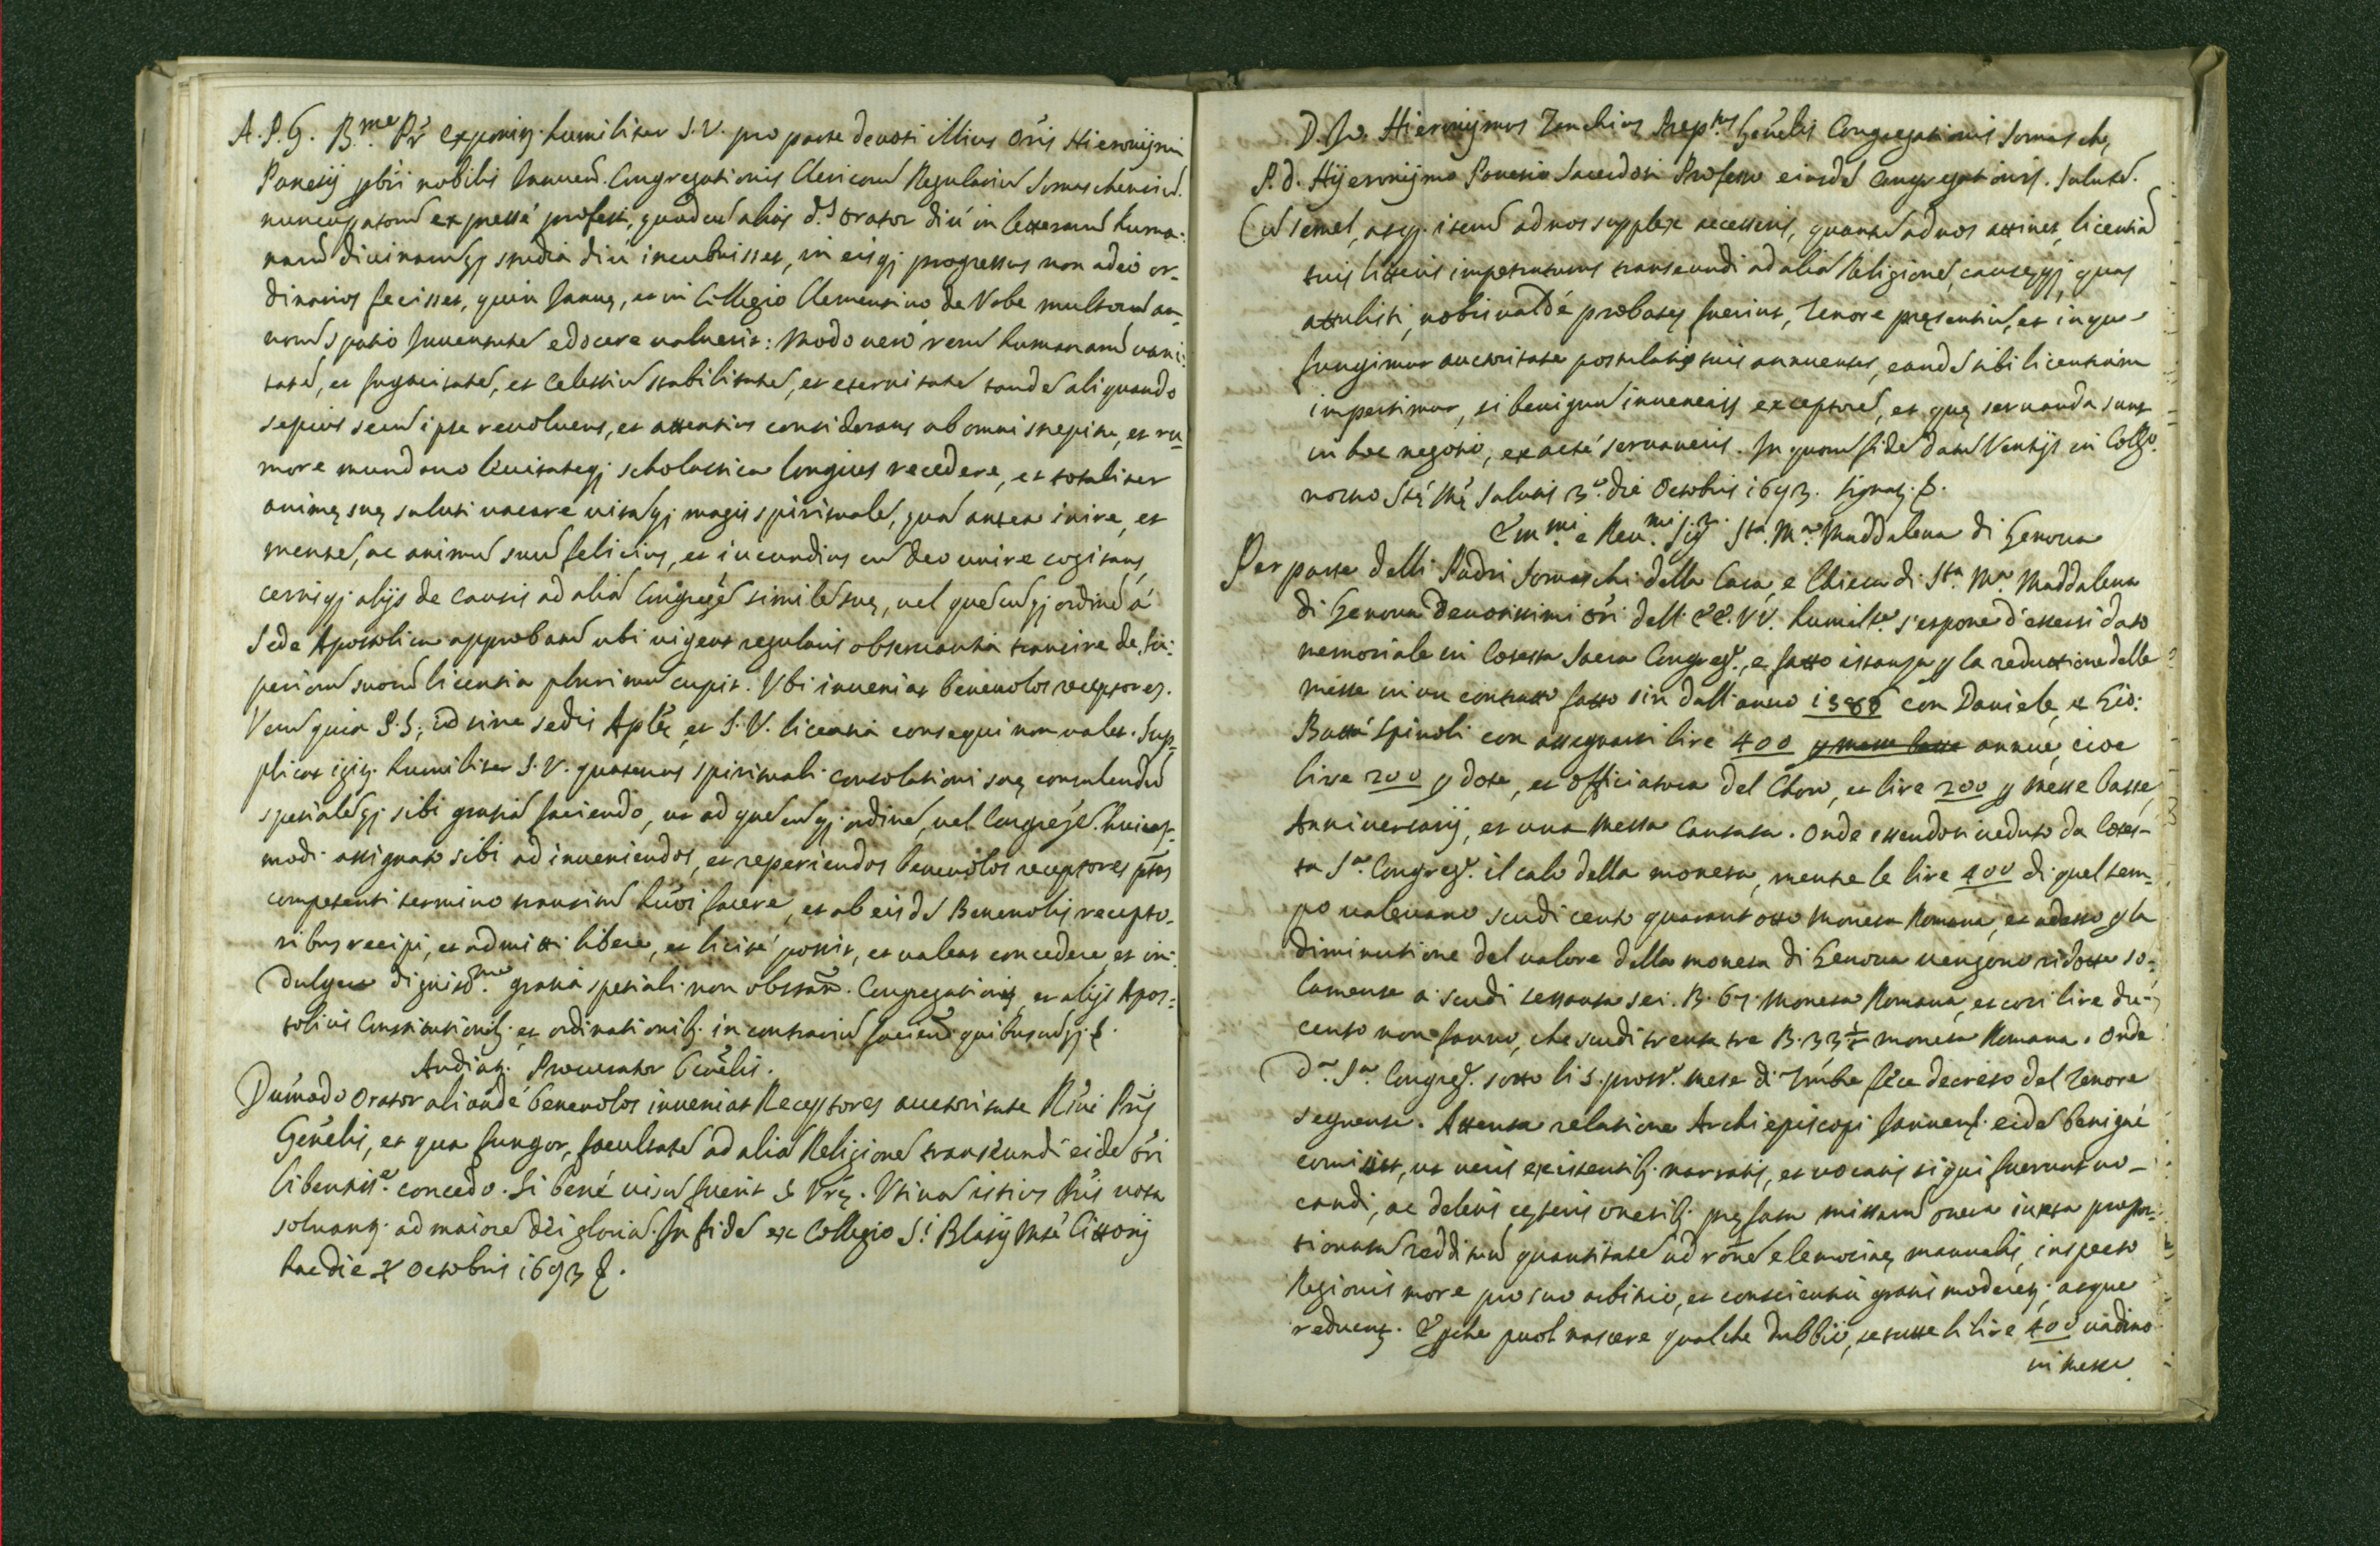 A. P. G. B.me Pr̃ Exponit. humiliter S. V. pro parte devoti illius Or̃is Hieronijmi
Panesij pbr̃i nobilis Januen̄. Congregationis Clericorũ Regulariũ Somaschensiũ.
nuncupatorũ expressé professi, quod cũ aliàs d.s orator diú in litterarũ huma:
narũ divinarũqȝ studia diú incubuisset, in eisqȝ progressus non adeò or-
dinarios fecisset, quin Januę, et in Collegio Clementino de Vrbe multorũ an-
norũ spatio Juventutẽ edocere valuerit: Modo verò rerũ humanarũ vani:
tatẽ, et fugacitatẽ, et Celestiũ stabilitatẽ, et eternitatẽ tandẽ aliquando
sepius secũ ipse revolvens, et attentius considerans ab omni strepitu, et ru-
more mundano levitateqȝ scholastica longius recedere, et totaliter
animę suę saluti vacare vitãqȝ magis spiritualẽ, quã antea inire, et
mentẽ, ac animũ suũ felicius, et iucundius cũ Deo unire cogitans,
certisqȝ alijs de causis ad aliã Congregẽ similẽ suę, vel quẽcũqȝ ordinẽ á
Sede Apostolica approbatũ ubi vigeat regularis observantia transire de Su:
periorũ suorũ licentia plurimũ cupit. Vbi inveniat benevolos receptores.
Verũ quia P. S. id sine sedis Aplicę, et S. V. licentia consequi non valet. Sup-
plicat igit. humiliter S. V. quatenus spirituali consolationi suę consulendũ
spetialẽqȝ sibi gratiã faciendo, ut ad quẽcũqȝ ordinẽ, vel Congregẽ. huius-
modi assignato sibi ad inveniendos, et reperiendos benevolos receptores ptos
competenti termino transitũ húoi facere, et ab eisdẽ Benevolis recepto-
ribus recipi, et admitti libere, et licité possit, et valeat concedere, et in:
dulgere dignet.me gratia spetiali non obstañ. Congregationis, et alijs Apos:
tolicis Constitutionib. et ordinationib. in contrariũ facieñ. quibuscũqȝ. &.
Audiat. Procurator Gen̄elis.
Dúmodo Orator aliundé benevolos inveniat Receptores auctoritate Rm̃i Pris
Generlis, et qua fungor, facultatẽ ad aliã Religionẽ transeundi eidẽ Or̃i
libentiss.e concedo. Si bené visũ fuerit S. Vrę. Vtinã istius Pris vota
solvant. ad maiorẽ Dei gloriã. In fidẽ ex Collegio S.i Blasij Mtis Cittorij
hac die X Octobris 1693 &.
D. Jo. Hieronijmus Zanchius Prep.tus Gen̄elis Congregationis Somaschę,
P. D. Hijeronijmo Panesio Sacerdoti Professo eiusdẽ Congregationis. Salutẽ.
Cũ semel, atqȝ. iterũ ad nos supplex accesseris, quantũ ad nos attinet, licentiã
tuis litteris impetraturus transeundi ad aliã Religionẽ, causęqȝ, quas
attulisti, nobis valdé probatę fuerint, Tenore pręsentiũ, et in qua
fungimur auctoritate postulatis tuis annuentes, eandẽ tibi licentiam
impertimur, si benignũ inveneris exceptorẽ, et quę servanda sunt
in hoc negotio, exacté servaveris. In quorũ fidẽ datũ Venetijs in Coll.o
nostro Stę Mę Salutis 3.a die Octobris 1693. Signat. &.
Em.mi e Reu.mi Sig.ri Sta. M.a Maddalena di Genova
Per parte delli Padri Somaschi della Casa, e Chiesa di Sta. M.a Maddalena
di Genova devotissimi Or̃i dell' EE. VV. humilte. s'espone d'essersi dato
memoriale in Cotesta Sacra Congreg.e, e fatto istanza p la reduttione delle
messe in un contratto fatto sin dall'anno 1586 con Daniele, e Gio:
Batta Spinoli con assegnarsi lire 400 p messe basse annue, cioe
lire 200 p dote, et officiatura del Choro, et lire 200 p Messe basse,
Anniversarij, et una Messa Cantata. Onde essendosi veduto da Cotes-
ta S.a Congreg.e il calo della moneta, mentre le lire 400 di quel tem-
po valevano scudi cento quarant'otto Moneta Romana, et adesso p la
diminutione del valore della moneta di Genova vengono ridotte so-
lamente a scudi sessanta sei. B. 67. Moneta Romana, et così lire du-
cento non fanno, che scudi trenta tre B. 33½ moneta Romana. Onde
D.a S.a Congreg.e sotto li 5. pross.o Mese di 7mbre féce decreto del Tenore
seguente. Attenta relatione Archiepiscopi Januens. eidẽ benigné
comisit, ut veris existentib. narratis, et vocatis si qui fuerunt vo-
candi, ac deletis cęteris onerib. pręfata missarũ onera iuxta propor-
tionatã redditũ quantitatẽ ad rõnẽ elemosinę manualis, inspecto
Regionis more pro suo arbitrio, et conscientia gratis moderet., atque
reducat. E pche puol nascere qualche dubbio, se tutte le lire 400 vadino
in messe